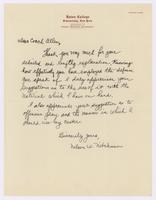 Union College
Schenectady, New York
Dear Coach Allen,
Thank you very much for your
detailed and lengthy explanation. Knowing
how effectively you have employed the defense
you speak of, I duly appreciate your
suggestions as to the use of it with the
material which I have on hand.
I also appreciate your suggestion as to
offensive play, and the manner in which I
should use my center.
Sincerely yours,
Nelson W. Nitchman